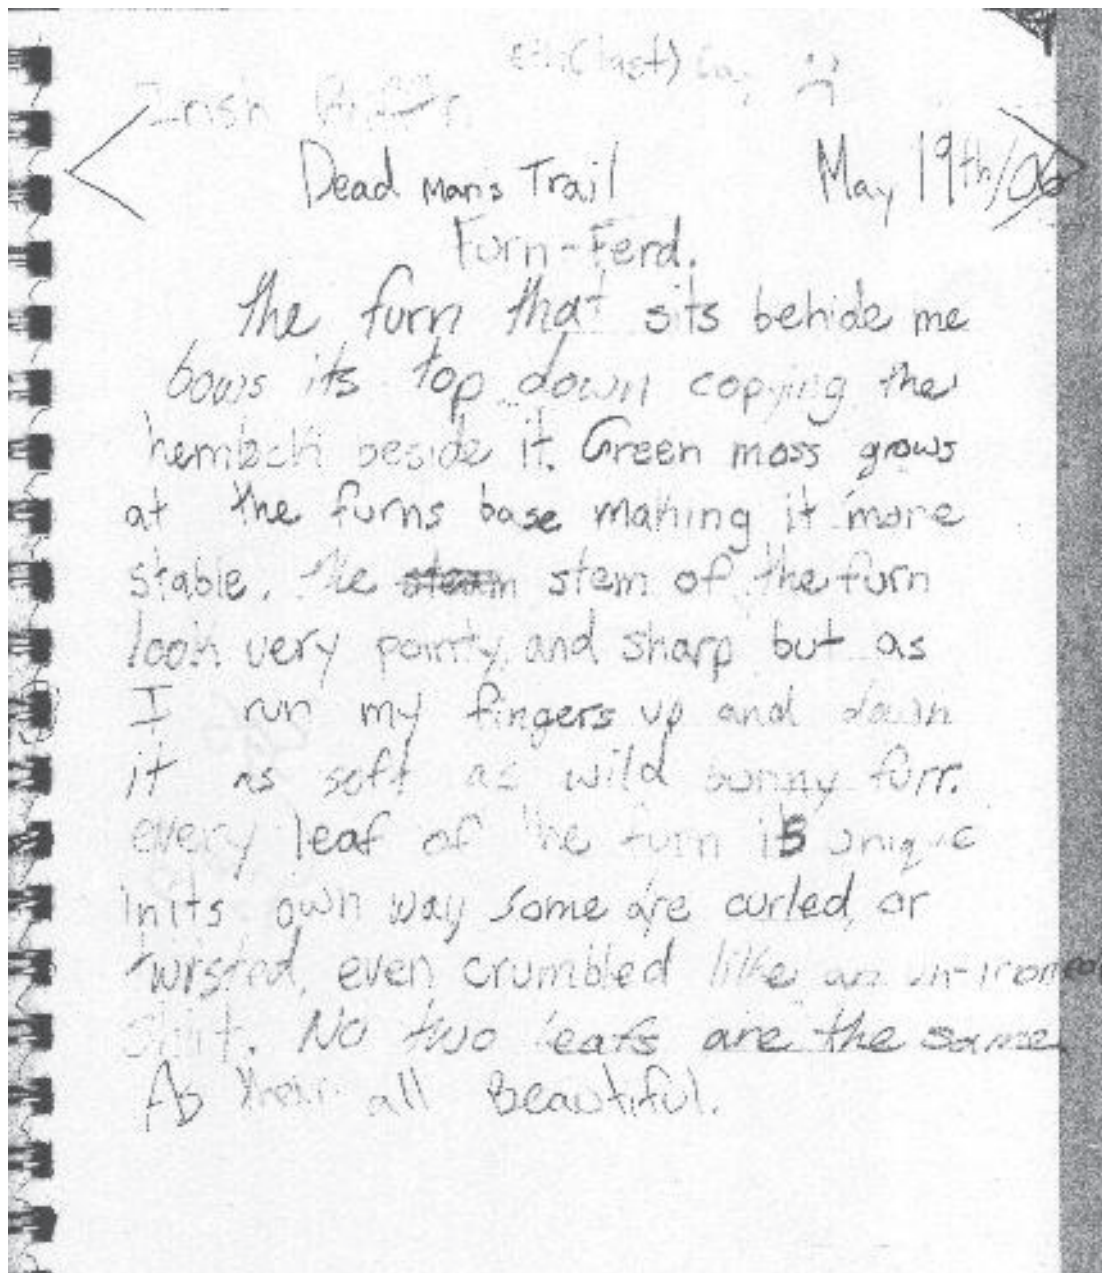 (last)
Dead mans Trail May 19th/06
Furn-Ferd.
The furn that sits behide me
bows its top down copying the
hemlock beside it. Green moss grows
at the furns base making it more
stable. The stem of the furn
look very pointy and sharp but as
I run my fingers up and down
it as soft as wild bunny furr.
every leaf of the furn is unique
in its own way some are curled, or
twisted, even crumbled like an un-ironed
shirt. No two leafs are the same.
As their all Beautiful.